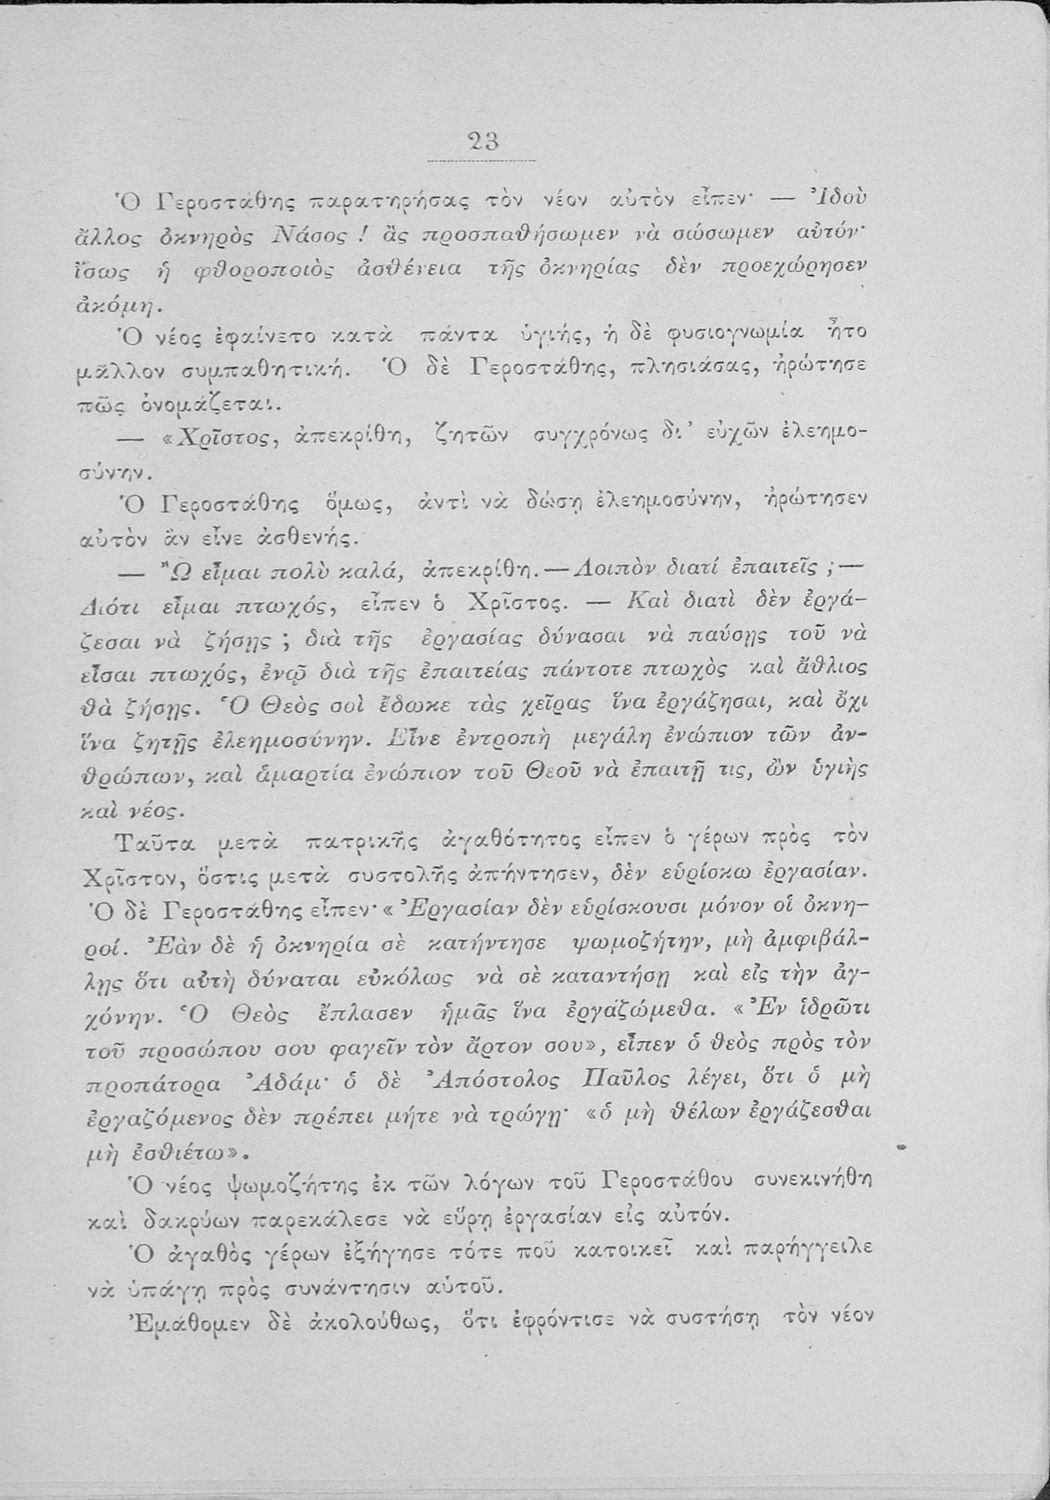 23
Ὁ Γεροστάθης παρατηρήσας τὸν νέον αὐτὸν εἶπεν· — Ἰδοὺ
ἄλλος ὀκνηρὸς Νάσος ! ἂς προσπαθήσωμεν νὰ σώσωμεν αὐτόν·
ἴσως ἡ φθοροποιὸς ἀσθένεια τῆς ὀκνηρίας δὲν προεχώρησεν
ἀκόμη.
Ὁ νέος ἐφαίνετο κατὰ πάντα ὑγιής, ἡ δὲ φυσιογνωμία ἦτο
μᾶλλον συμπαθητική. Ὁ δὲ Γεροστάθης, πλησιάσας, ἠρώτησε
πῶς ὀνομάζεται.
— «Χρῖστος, ἀπεκρίθη, ζητῶν συγχρόνως δι’ εὐχῶν ἐλεημο-
σύνην.
Ὁ Γεροστάθης ὅμως, ἀντὶ νὰ δώσῃ ἐλεημοσύνην, ἠρώτησεν
αὐτὸν ἂν εἶνε ἀσθενής.
— Ὢ εἶμαι πολὺ καλά, ἀπεκρίθη. — Λοιπὸν διατί ἐπαιτεῖς ; —
Διότι εἶμαι πτωχός, εἶπεν ὁ Χρῖστος. — Καὶ διατὶ δὲν ἐργά-
ζεσαι νὰ ζήσῃς ; διὰ τῆς ἐργασίας δύνασαι νὰ παύσῃς τοῦ νὰ
εἶσαι πτωχός, ἐνῷ διὰ τῆς ἐπαιτείας πάντοτε πτωχὸς καὶ ἄθλιος
θὰ ζήσῃς. Ὁ Θεὸς σοὶ ἔδωκε τὰς χεῖρας ἵνα ἐργάζησαι, καὶ ὄχι
ἵνα ζητῇς ἐλεημοσύνην. Εἶνε ἐντροπὴ μεγάλη ἐνώπιον τῶν ἀν-
θρώπων, καὶ ἁμαρτία ἐνώπιον τοῦ Θεοῦ νὰ ἐπαιτῇ τις, ὢν ὑγιὴς
καὶ νέος.
Ταῦτα μετὰ πατρικῆς ἀγαθότητος εἶπεν ὁ γέρων πρὸς τὸν
Χρῖστον, ὅστις μετὰ συστολῆς ἀπήντησεν, δὲν εὑρίσκω ἐργασίαν.
Ὁ δὲ Γεροστάθης εἶπεν· «Ἐργασίαν δὲν εὑρίσκουσι μόνον οἱ ὀκνη-
ροί. Ἐὰν δὲ ἡ ὀκνηρία σὲ κατήντησε ψωμοζήτην, μὴ ἀμφιβάλ-
λῃς ὅτι αὐτὴ δύναται εὐκόλως νὰ σὲ καταντήσῃ καὶ εἰς τὴν ἀγ-
χόνην. Ὁ Θεὸς ἔπλασεν ἡμᾶς ἵνα ἐργαζώμεθα. «Ἐν ἱδρῶτι
τοῦ προσώπου σου φαγεῖν τὸν ἄρτον σου», εἶπεν ὁ θεὸς πρὸς τὸν
προπάτορα Ἀδάμ· ὁ δὲ Ἀπόστολος Παῦλος λέγει, ὅτι ὁ μὴ
ἐργαζόμενος δὲν πρέπει μήτε νὰ τρώγῃ· «ὁ μὴ θέλων ἐργάζεσθαι
μὴ ἐσθιέτω».
Ὁ νέος ψωμοζήτης ἐκ τῶν λόγων τοῦ Γεροστάθου συνεκινήθη
καὶ δακρύων παρεκάλεσε νὰ εὕρῃ ἐργασίαν εἰς αὐτόν.
Ὁ ἀγαθὸς γέρων ἐξήγησε τότε ποῦ κατοικεῖ καὶ παρήγγειλε
νὰ ὑπάγῃ πρὸς συνάντησιν αὐτοῦ.
Ἐμάθομεν δὲ ἀκολούθως, ὅτι ἐφρόντισε νὰ συστήσῃ τὸν νέον